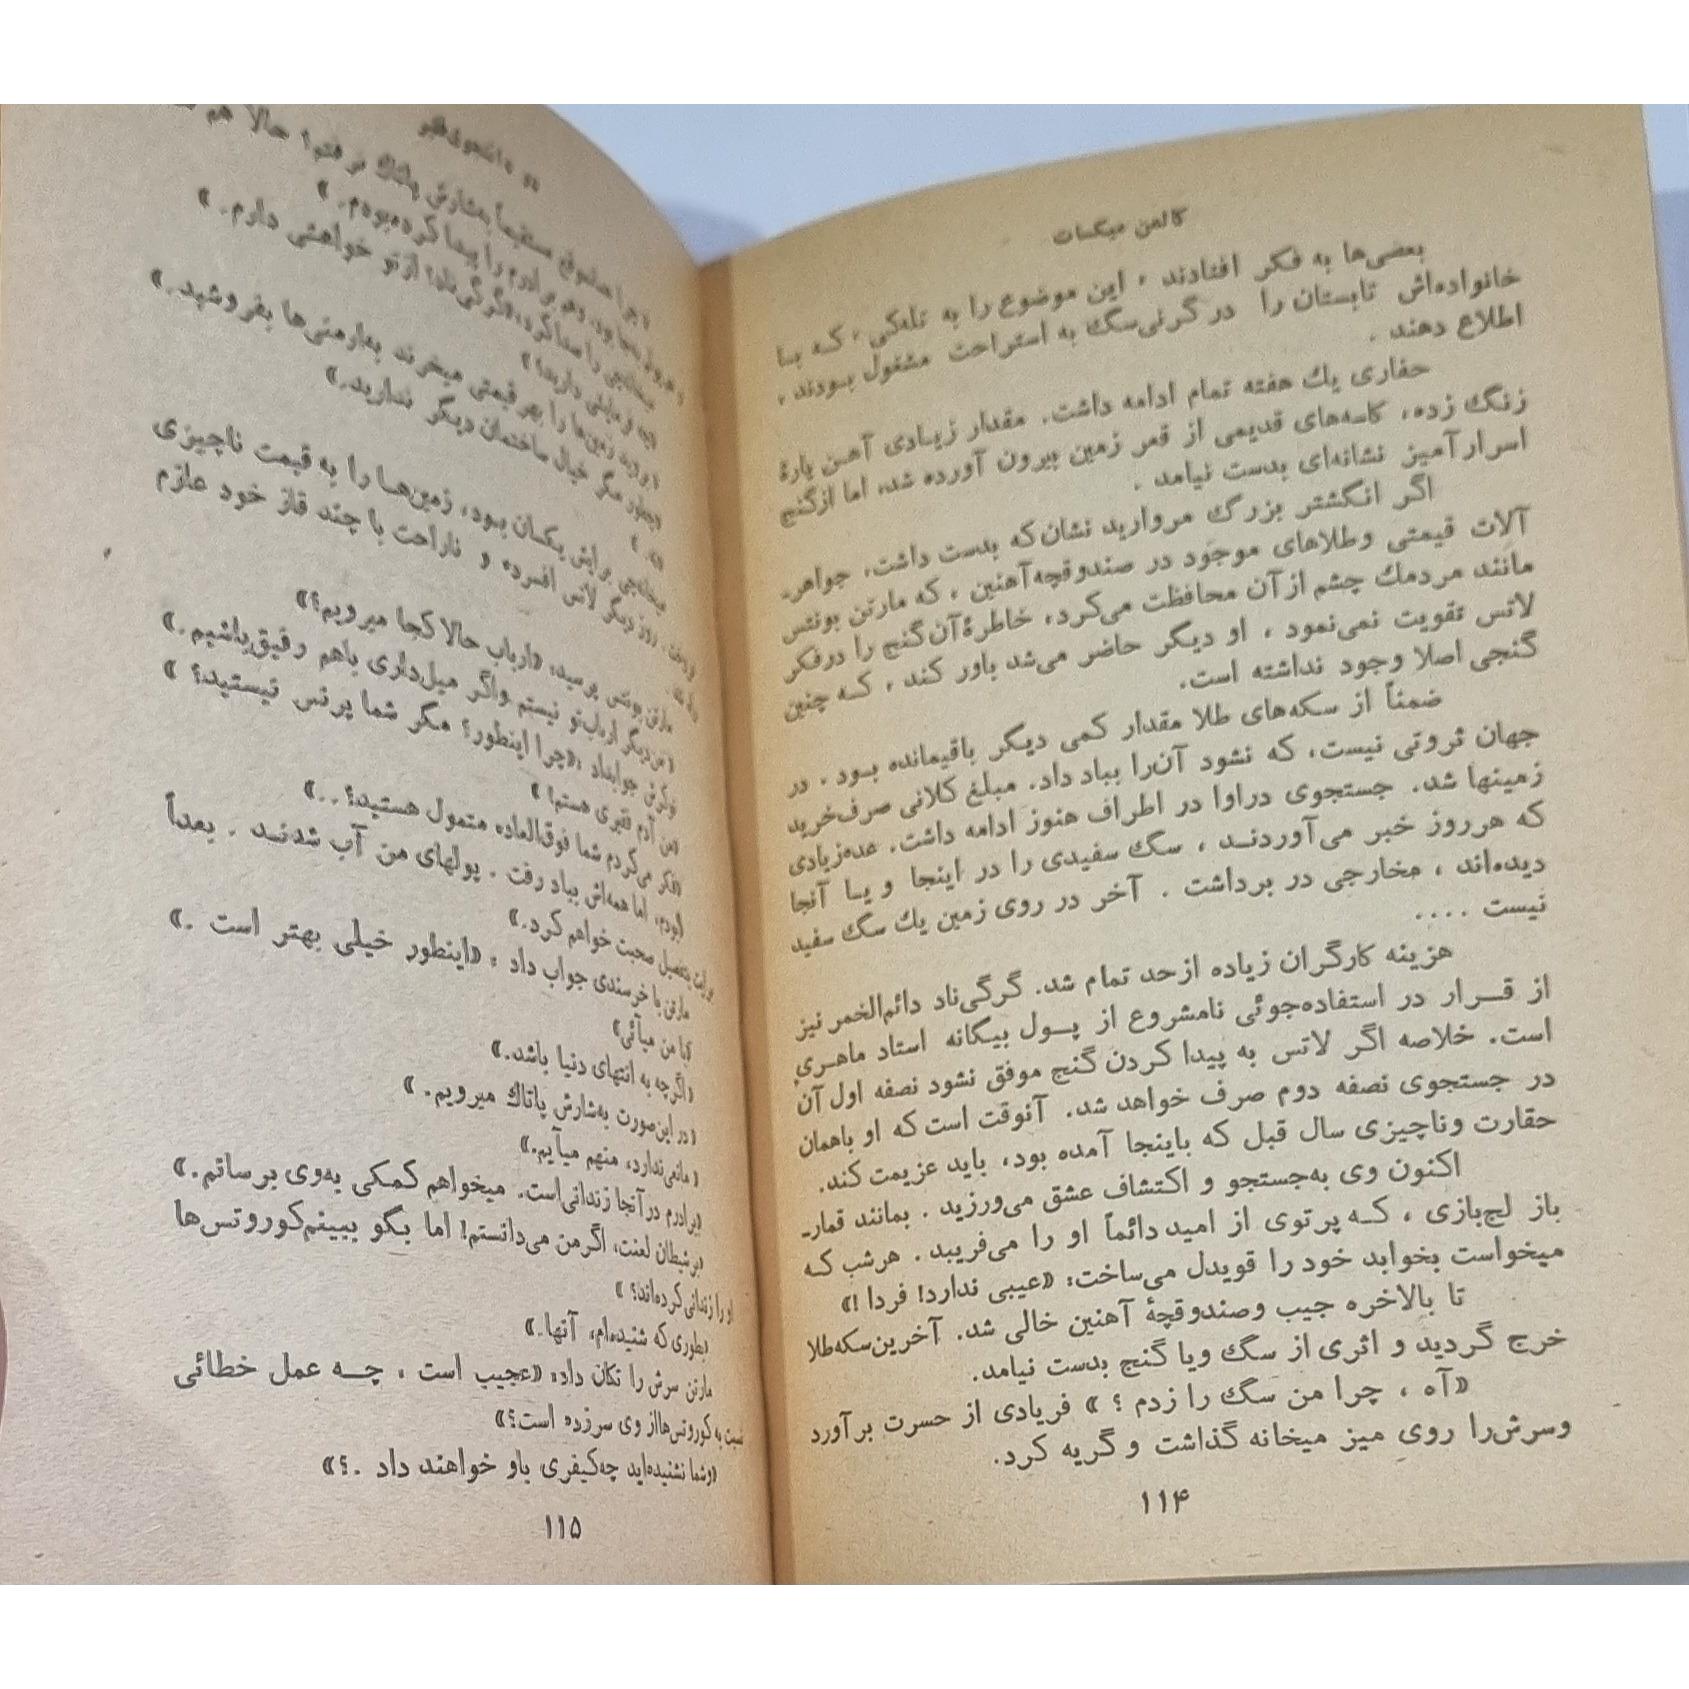 کالمن میکسات
بعضی‌ها به فکر افتادند ، این موضوع را به تله‌کی ، که بـا
خانواده‌اش تابستان را در گرنی‌سگ به استراحت مشغول بـودند ،
اطلاع دهند .
حفاری یك هفته تمام ادامه داشت. مقدار زیـادی آهـن پارهٔ
زنگ زده، کاسه‌های قدیمی از قعر زمین بیرون آورده شد، اما ازگنج
اسرارآمیز نشانه‌ای بدست نیامد .
اگر انگشتر بزرگ مروارید نشان‌که بدست داشت، جواهر-
آلات قیمتی وطلاهای موجود در صندوقچه‌آهنین ، که مارتن بونتس
مانند مردمك چشم از آن محافظت می‌کرد، خاطرهٔ آن گنج را درفکر
لاتس تقویت نمی‌نمود ، او دیگر حاضر می‌شد باور کند ، کـه چنین
گنجی اصلا وجود نداشته است.
ضمناً از سکه‌های طلا مقدار کمی دیگر باقیمانده بـود ، در
جهان ثروتی نیست، که نشود آن‌را بباد داد. مبلغ کلانی صرف‌خرید
زمینها شد. جستجوی دراوا در اطراف هنوز ادامه داشت. عده‌زیادی
که هرروز خبر می‌آوردنـد ، سگ سفیدی را در اینجا و یـا آنجا
دیده‌اند ، مخارجی در برداشت . آخر در روی زمین یك سگ سفید
نیست ....
هزینه کارگران زیاده ازحد تمام شد. گرگی‌ناد دائم‌الخمر نیز
از قـرار در استفاده‌جوئی نامشروع از پـول بیگانه استاد ماهـری
است. خلاصه اگر لاتس به پیدا کردن گنج موفق نشود نصفه اول آن
در جستجوی نصفه دوم صرف خواهد شد. آنوقت است که او باهمان
حقارت وناچیزی سال قبل که باینجا آمده بود، باید عزیمت کند.
اکنون وی به‌جستجو و اکتشاف عشق می‌ورزید . بمانند قمار-
باز لج‌بازی ، کـه پرتوی از امید دائماً او را می‌فریبد . هرشب که
میخواست بخوابد خود را قویدل می‌ساخت: «عیبی ندارد! فردا !»
تا بالاخره جیب وصندوقچهٔ آهنین خالی شد. آخرین‌سکه‌طلا
خرج گردید و اثری از سگ ویا گنج بدست نیامد.
«آه ، چرا من سگ را زدم ؟ » فریادی از حسرت برآورد
وسرش‌را روی میز میخانه گذاشت و گریه کرد.
۱۱۴
مستقیماً به‌شارش پاتاك نرفتم؟ حالا هم
برادرم را پیدا کرده‌بودم. »
میخانچی را صدا کرد، «گرگی‌ناد؟ ازتو خواهشی دارم. »
«چه فرمایشی دارید؟»
«بروید زمین‌ها را بهر قیمتی میخرند به‌ارمنی‌ها بفروشید.»
«چطور مگر خیال ساختمان دیگر ندارید.»
«نه. »
میخانچی برایش یکسان بـود، زمین‌هـا را به قیمت ناچیزی
فروخت. روز دیگر لاتس افسرده و ناراحت با چند قاز خود عازم
مارتن بونتس پرسید، «ارباب حالا کجا میرویم؟»
«من‌دیگر ارباب‌تو نیستم واگر میل‌داری باهم رفیق‌باشیم.»
نوکرش جوابداد ،«چرا اینطور؟ مگر شما پرنس نیستید؟ »
«من آدم فقیری هستم! »
«فکر می‌کردم شما فوق‌العاده متمول هستید؟..»
«بودم، اما همه‌اش بباد رفت . پولهای من آب شدنـد . بعداً
برایت بتفصیل صحبت خواهم کرد.»
مارتن با خرسندی جواب داد ، «اینطور خیلی بهتر است .»
«با من میآئی»
«اگرچه به انتهای دنیا باشد.»
«در این‌صورت به‌شارش پاتاك میرویم. »
«مانعی‌ندارد، منهم میآیم.»
«برادرم در آنجا زندانی‌است. میخواهم کمکی به‌وی برسانم.»
«برشیطان لعنت، اگرمن می‌دانستم! اما بگو ببینم‌کوروتس‌ها
او را زندانی‌کرده‌اند؟ »
«بطوری که شنیده‌ام، آنها.»
مارتن سرش را تکان داد، «عجیب است ، چـه عمل خطائی
نسبت به کوروتس‌هااز وی سرزده است؟»
«وشما نشنیده‌اید چه‌کیفری باو خواهند داد .؟»
۱۱۵